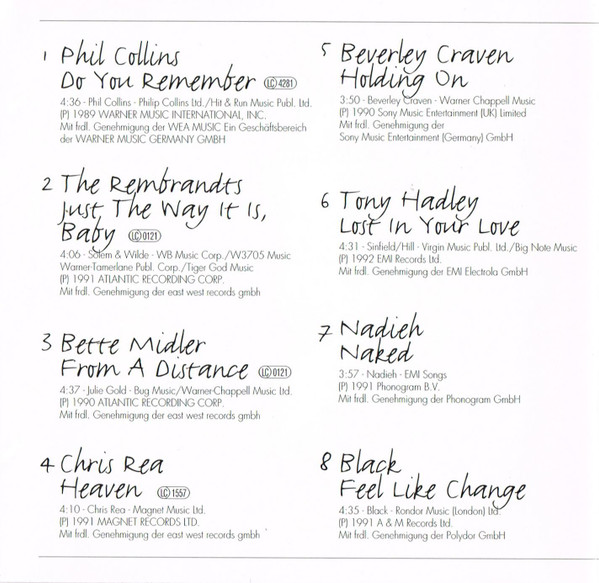 1 Phil Collins
Do You Remember LC 4281
4:36 · Phil Collins · Philip Collins Ltd./Hit & Run Music Publ. Ltd.
(P) 1989 WARNER MUSIC INTERNATIONAL, INC.
Mit frdl. Genehmigung der WEA MUSIC Ein Geschäftsbereich
der WARNER MUSIC GERMANY GMBH
2 The Rembrandts
Just The Way It Is,
Baby LC 0121
4:06 · Solem & Wilde · WB Music Corp./W3705 Music
Warner-Tamerlane Publ. Corp./Tiger God Music
(P) 1991 ATLANTIC RECORDING CORP.
Mit frdl. Genehmigung der east west records gmbh
3 Bette Midler
From A Distance LC 0121
4:37 · Julie Gold · Bug Music/Warner-Chappell Music Ltd.
(P) 1990 ATLANTIC RECORDING CORP.
Mit frdl. Genehmigung der east west records gmbh
4 Chris Rea
Heaven LC 1557
4:10 · Chris Rea · Magnet Music Ltd.
(P) 1991 MAGNET RECORDS LTD.
Mit frdl. Genehmigung der east west records gmbh
5 Beverley Craven
Holding On
3:50 · Beverley Craven · Warner Chappell Music
(P) 1990 Sony Music Entertainment (UK) Limited
Mit frdl. Genehmigung der
Sony Music Entertainment (Germany) GmbH
6 Tony Hadley
Lost In Your Love
4:31 · Sinfield/Hill · Virgin Music Publ. Ltd./Big Note Music
(P) 1992 EMI Records Ltd.
Mit frdl. Genehmigung der EMI Electrola GmbH
7 Nadieh
Naked
3:57 · Nadieh · EMI Songs
(P) 1991 Phonogram B.V.
Mit frdl. Genehmigung der Phonogram GmbH
8 Black
Feel Like Change
4:35 · Black · Rondor Music (London) Ltd.
(P) 1991 A & M Records Ltd.
Mit frdl. Genehmigung der Polydor GmbH